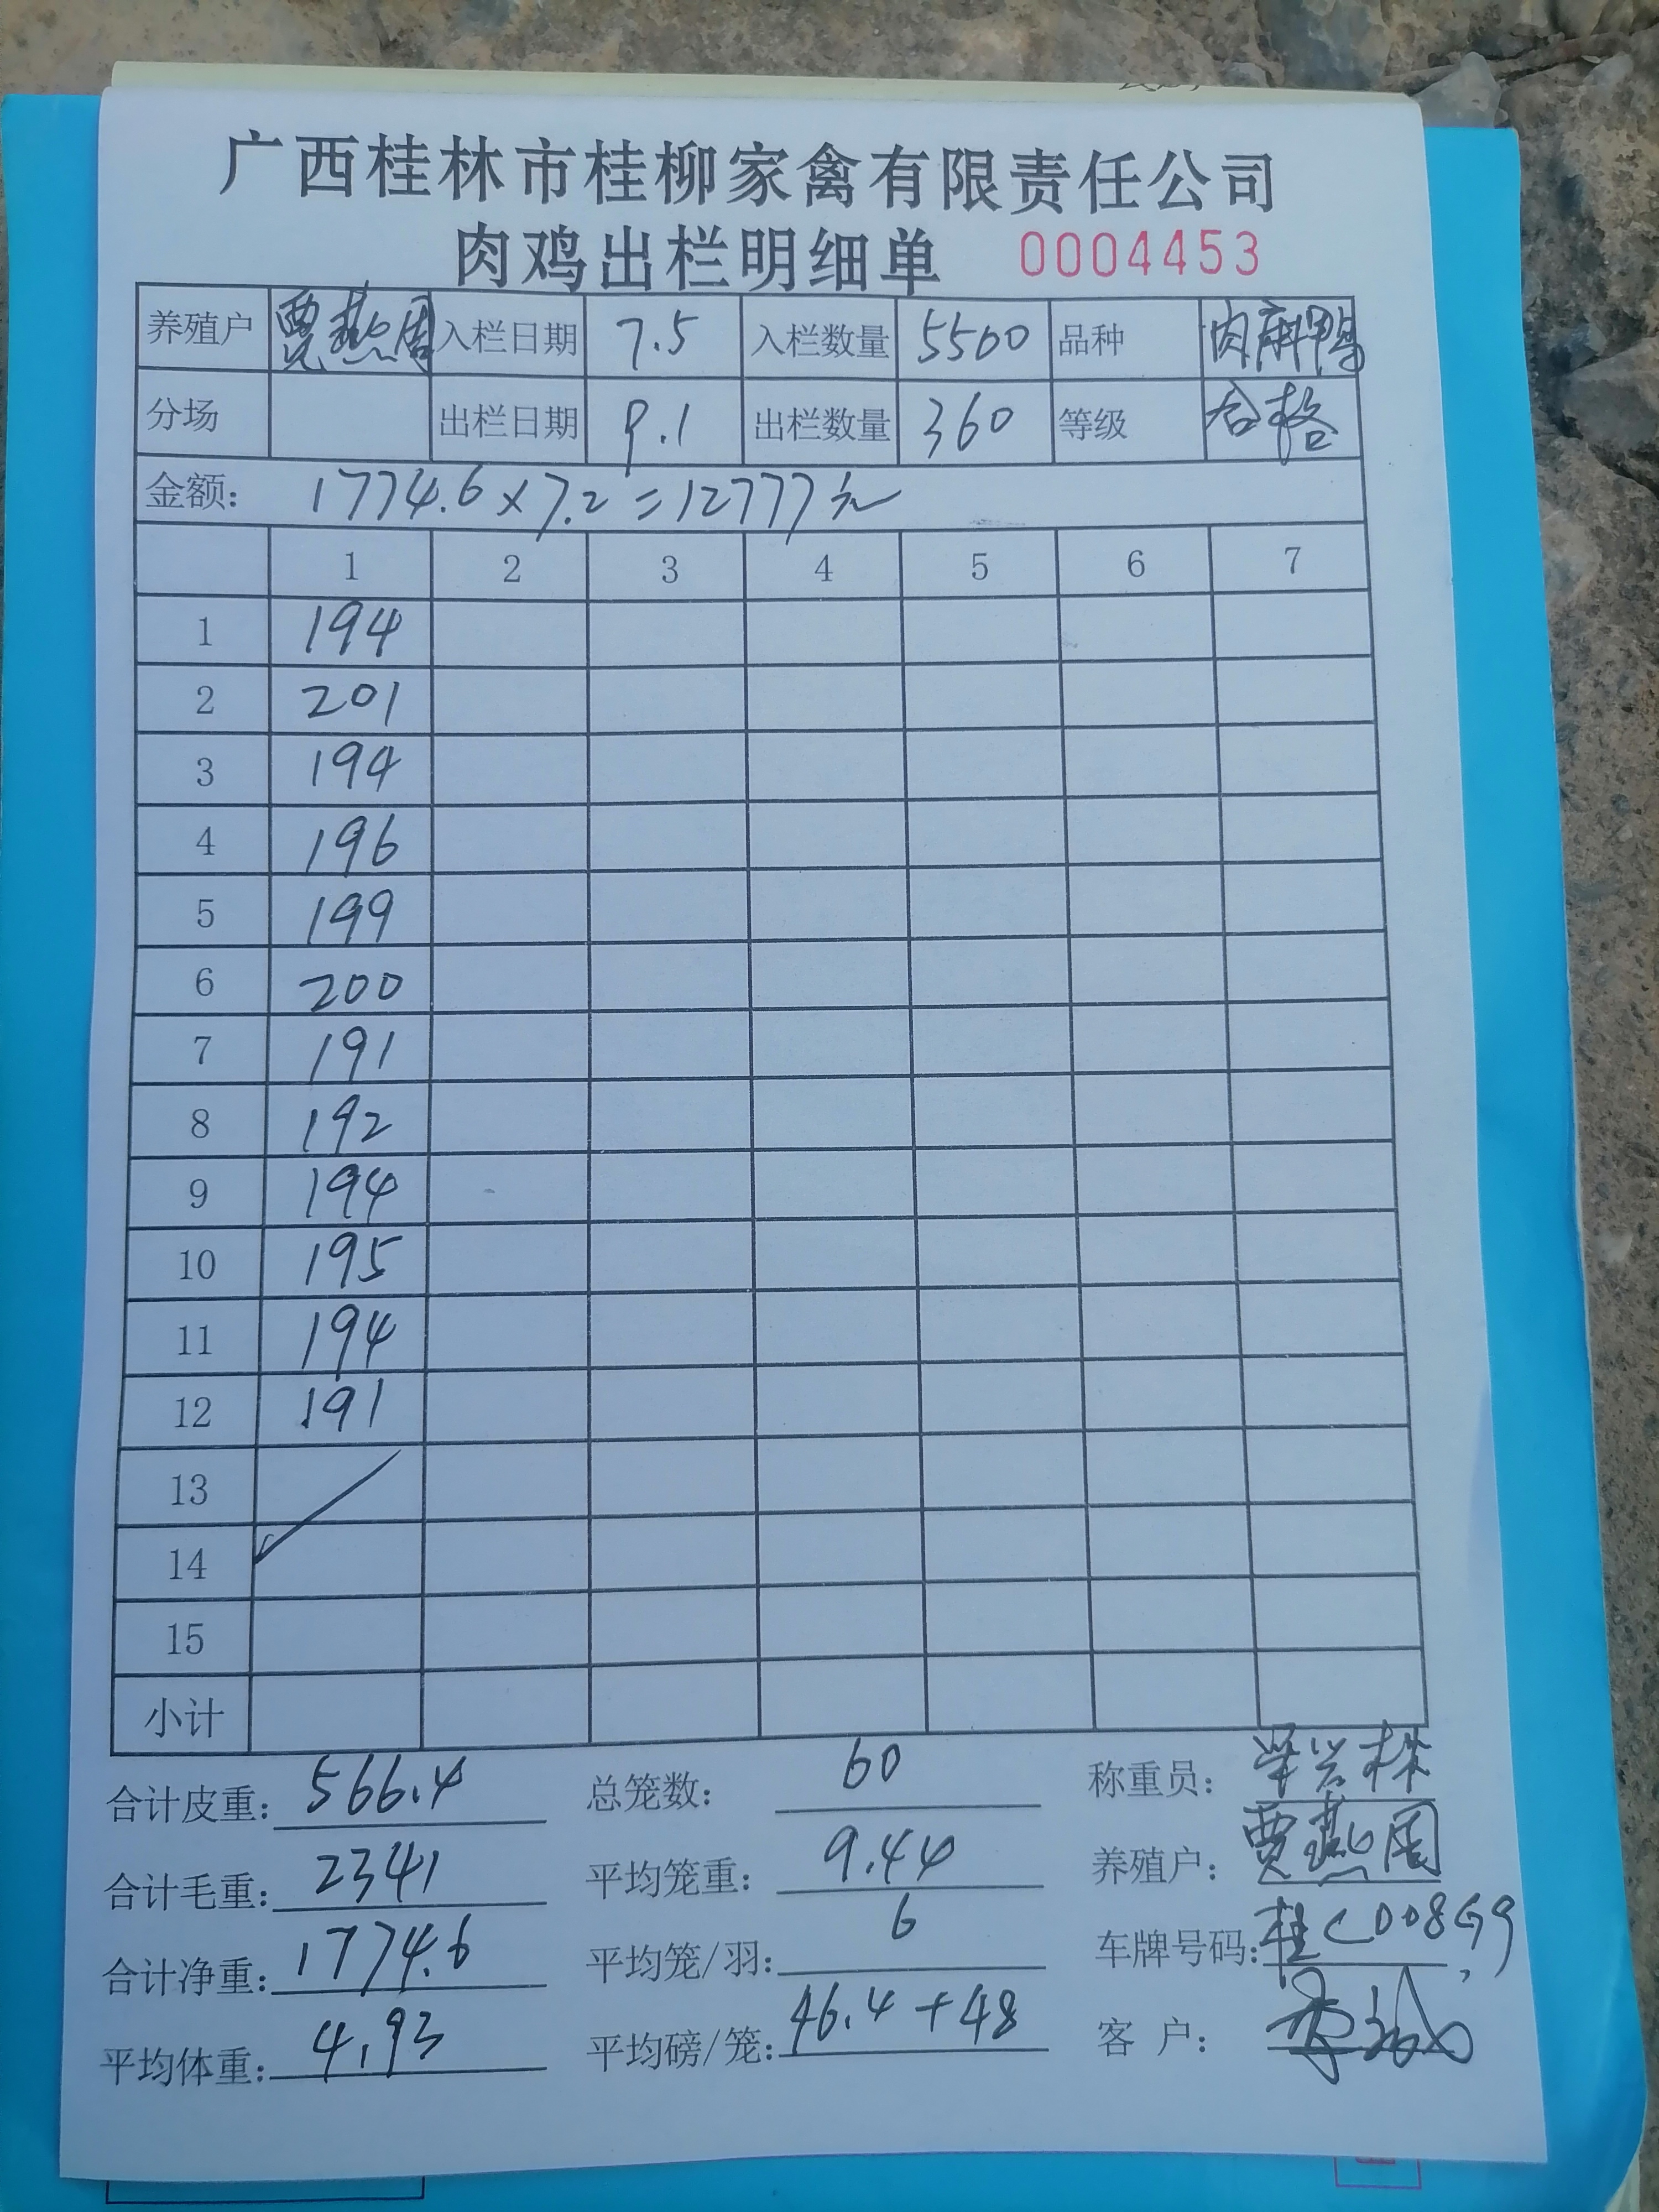 广西桂林市桂柳家禽有限责任公司
肉鸡出栏明细单 0004453
养殖户 贾燕周 入栏日期 7.5 入栏数量 5500 品种 肉麻鸭
分场 出栏日期 9.1 出栏数量 360 等级 合格
金额: 1774.6×7.2=12777元
1 2 3 4 5 6 7
1 194
2 201
3 194
4 196
5 199
6 200
7 191
8 192
9 194
10 195
11 194
12 191
13
14
15
小计
合计皮重: 566.4 总笼数: 60 称重员:
合计毛重: 2341 平均笼重: 9.44 养殖户: 贾燕周
合计净重: 1774.6 平均笼/羽: 6 车牌号码: 桂CD08G9
平均体重: 4.93 平均磅/笼: 46.4+48 客 户: